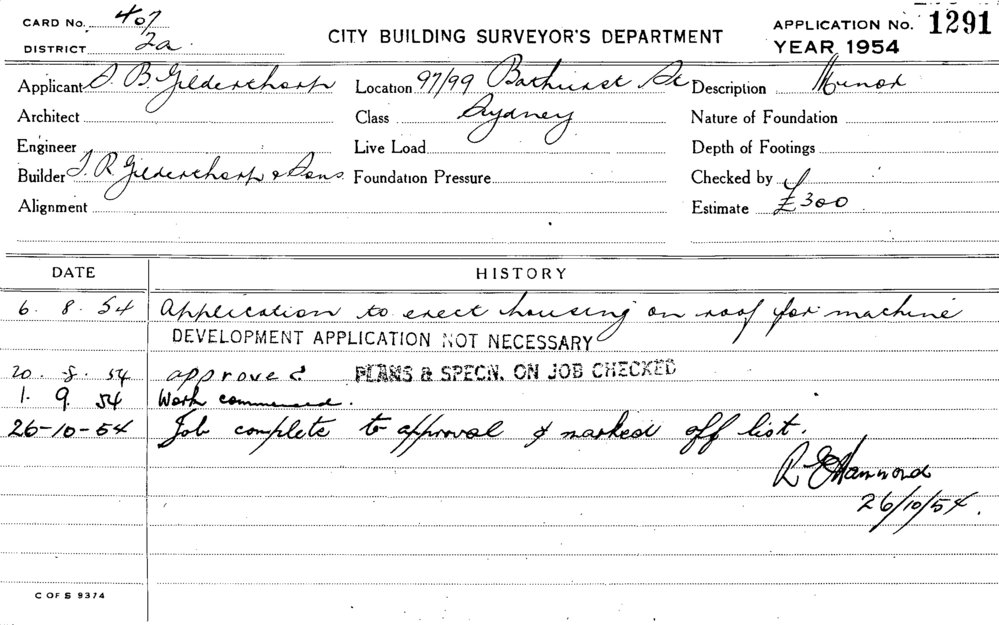 CARD No. 407
DISTRICT 2a
CITY BUILDING SURVEYOR'S DEPARTMENT
APPLICATION No. 1291
YEAR 1954
Applicant S. B. Gilderthorp
Location 97/99 Bathurst St
Description Minor
Architect
Class Sydney
Nature of Foundation
Engineer
Live Load
Depth of Footings
Builder T. R. Gilderthorp & Sons.
Foundation Pressure
Checked by
Alignment
Estimate £300
DATE HISTORY
6. 8. 54 Application to erect housing on roof for machine
DEVELOPMENT APPLICATION NOT NECESSARY
20. 8. 54 approved PLANS & SPECN. ON JOB CHECKED
1. 9. 54 Work commenced.
26-10-54 Job complete to approval & marked off list.
R E Hammond
26/10/54.
C OF S 9374